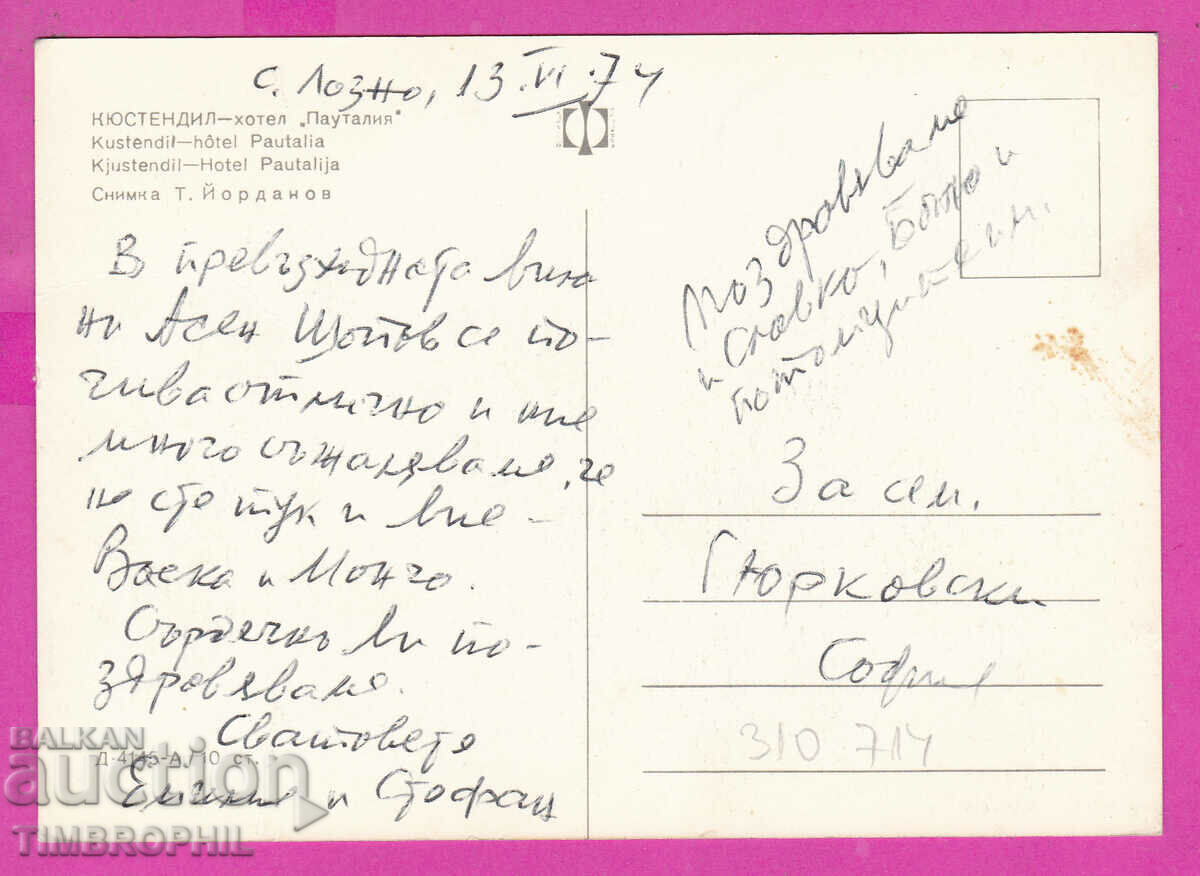 с. Лозно, 13.VI.74
КЮСТЕНДИЛ—хотел „Пауталия"
Kustendil—hôtel Pautalia
Kjustendil—Hotel Pautalija
Снимка Т. Йорданов
В превъзходната вила
на Асен Шопов се по-
чива отлично и ние
много съжаляваме, че
не сте тук и вие –
Васка и Мончо.
Сърдечно ви по-
здравяваме.
Сватовете
и
Д-4145-А/10 ст.
Поздравяваме
и Славко, и
За сем.
Гюрковски
София
310 714
BALKAN
auction
TIMBROPHIL